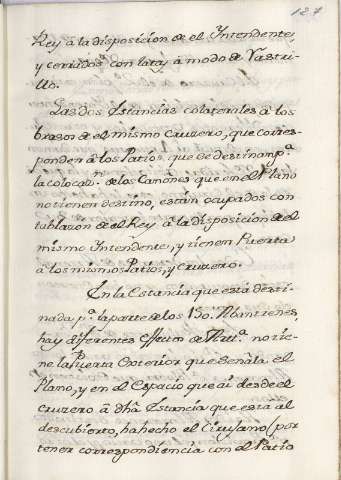 127
Rey â la disposicion de el Intendente,
y cerrados con lata, â modo de Rastri-
llo.
Las dos Estancias colaterales â los
brazos de el mismo Cruzero, que corres-
ponden â los Patios, que se destinan pª.
la colocazn. de los Cañones que en el Plano
no tienen destino, están ocupados con
tablazon de el Rey â la disposicion de el
mismo Intendente, y tienen Puerta
â los mismos Patios, y Cruzero.
En la Estancia que está desti-
nada pª. la parte de los
hay diferentes effectos de Artt.ª no tie-
ne la Puerta Opterior que Señala el
Plano, y en el Espacio que ai desde el
Cruzero â dhâ Estancia que está al
descubierto, ha hecho el Cirujano (por
tener correspondiencia con el Patio